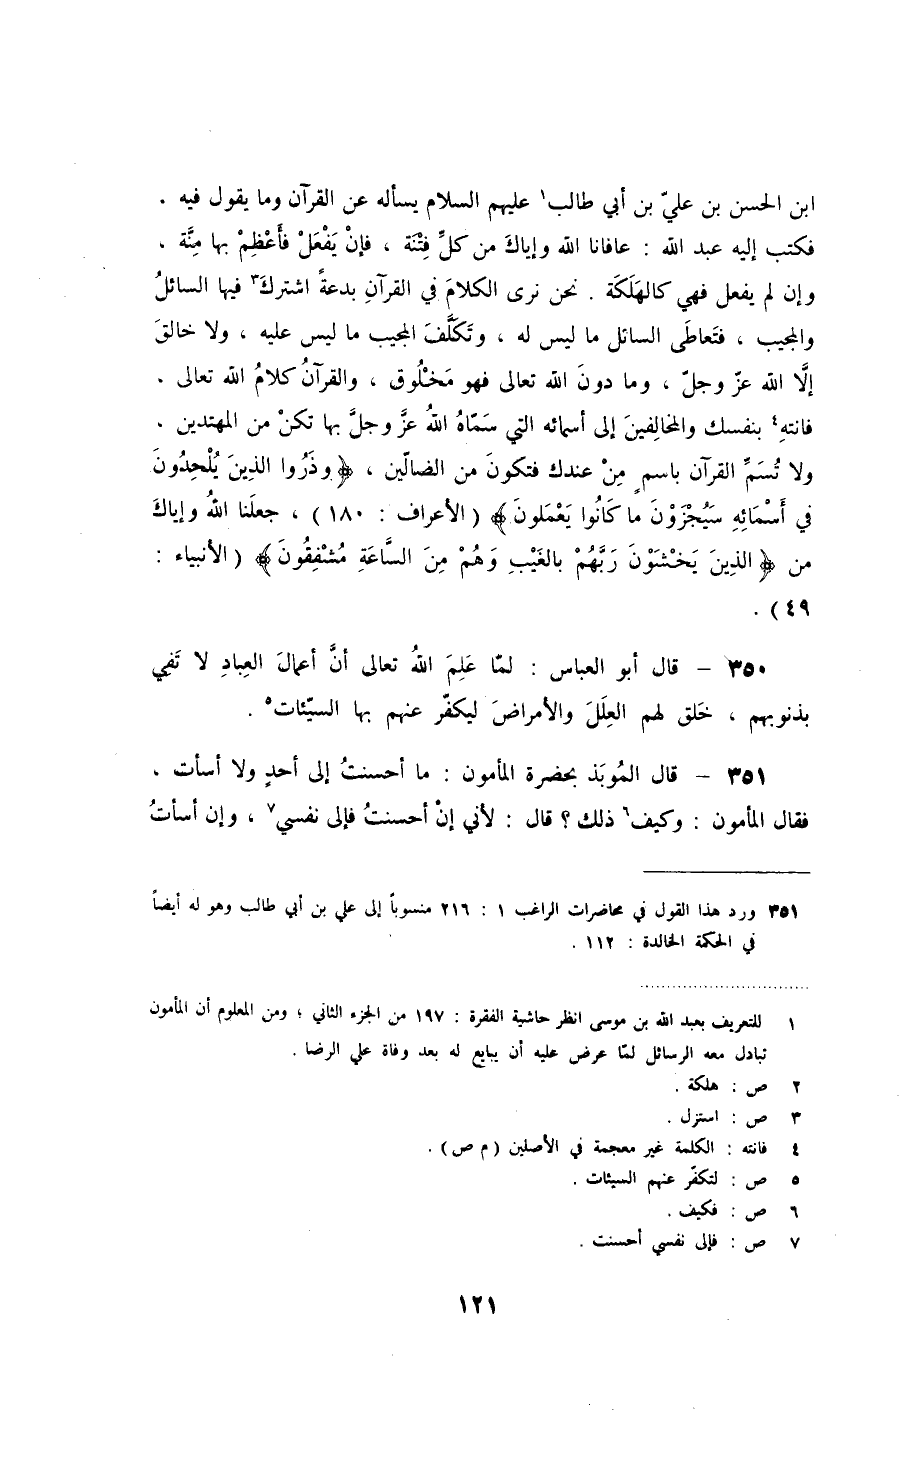 ابن الحسن بن عليّ بن أبي طالب١ عليهم السلام يسأله عن القرآن وما يقول فيه .
فكتب إليه عبد الله : عافانا الله وإياكَ من كلِّ فِتْنَة ، فإنْ يَفْعَلْ فأَعْظِمْ بها مِنَّة ،
وإن لم يفعل فهي كالهَلَكَة . نحن نرى الكلامَ في القرآنِ بدعةً اشتركَ٣ فيها السائلُ
والمجيب ، فتَعاطَى السائل ما ليس له ، وتَكَلَّفَ المجيب ما ليس عليه ، ولا خالقَ
إلَّا الله عزّ وجلّ ، وما دونَ الله تعالى فهو مَخْلُوق ، والقرآنُ كلامُ الله تعالى .
فانتهِ٤ بنفسك والمخالِفينَ إلى أسمائه التي سَمَّاهُ اللهُ عزَّ وجلَّ بها تكنْ من المهتدين .
ولا تُسَمِّ القرآن باسمٍ مِنْ عندك فتكونَ من الضالّين ، ﴿وذَرُوا الذِينَ يُلْحِدُونَ
في أَسْمَائِهِ سَيُجْزَوْنَ ما كَانُوا يَعْمَلونَ﴾ (الأعراف : ١٨٠) ، جعلَنا اللهُ وإياكَ
من ﴿الذِينَ يَخْشَوْنَ رَبَّهُمْ بالغَيْبِ وَهُمْ مِنَ السَّاعَةِ مُشْفِقُونَ﴾ (الأنبياء :
٤٩) .
٣٥٠ – قال أبو العباس : لمّا عَلِمَ اللهُ تعالى أنَّ أعمالَ العِبادِ لا تَفِي
بذنوبهم ، خَلق لهم العِلَلَ والأمراضَ ليكفّر عنهم بها السيّئات٥ .
٣٥١ – قال المُوبَذ بحضرة المأمون : ما أحسنتُ إلى أحدٍ ولا أسأت .
فقال المأمون : وكيف٦ ذلك ؟ قال : لأني إنْ أحسنتُ فإلى نفسي٧ ، وإن أسأتُ
٣٥١ ورد هذا القول في محاضرات الراغب ١ : ٢١٦ منسوباً إلى علي بن أبي طالب وهو له أيضاً
في الحكمة الخالدة : ١١٢ .
١ للتعريف بعبد الله بن موسى انظر حاشية الفقرة : ١٩٧ من الجزء الثاني ؛ ومن المعلوم أن المأمون
تبادل معه الرسائل لمّا عرض عليه أن يبايع له بعد وفاة علي الرضا .
٢ ص : هلكة .
٣ ص : استزل .
٤ فانته : الكلمة غير معجمة في الأصلين (م ص) .
٥ ص : لتكفّر عنهم السيئات .
٦ ص : فكيف .
٧ ص : فإلى نفسي أحسنت .
١٢١